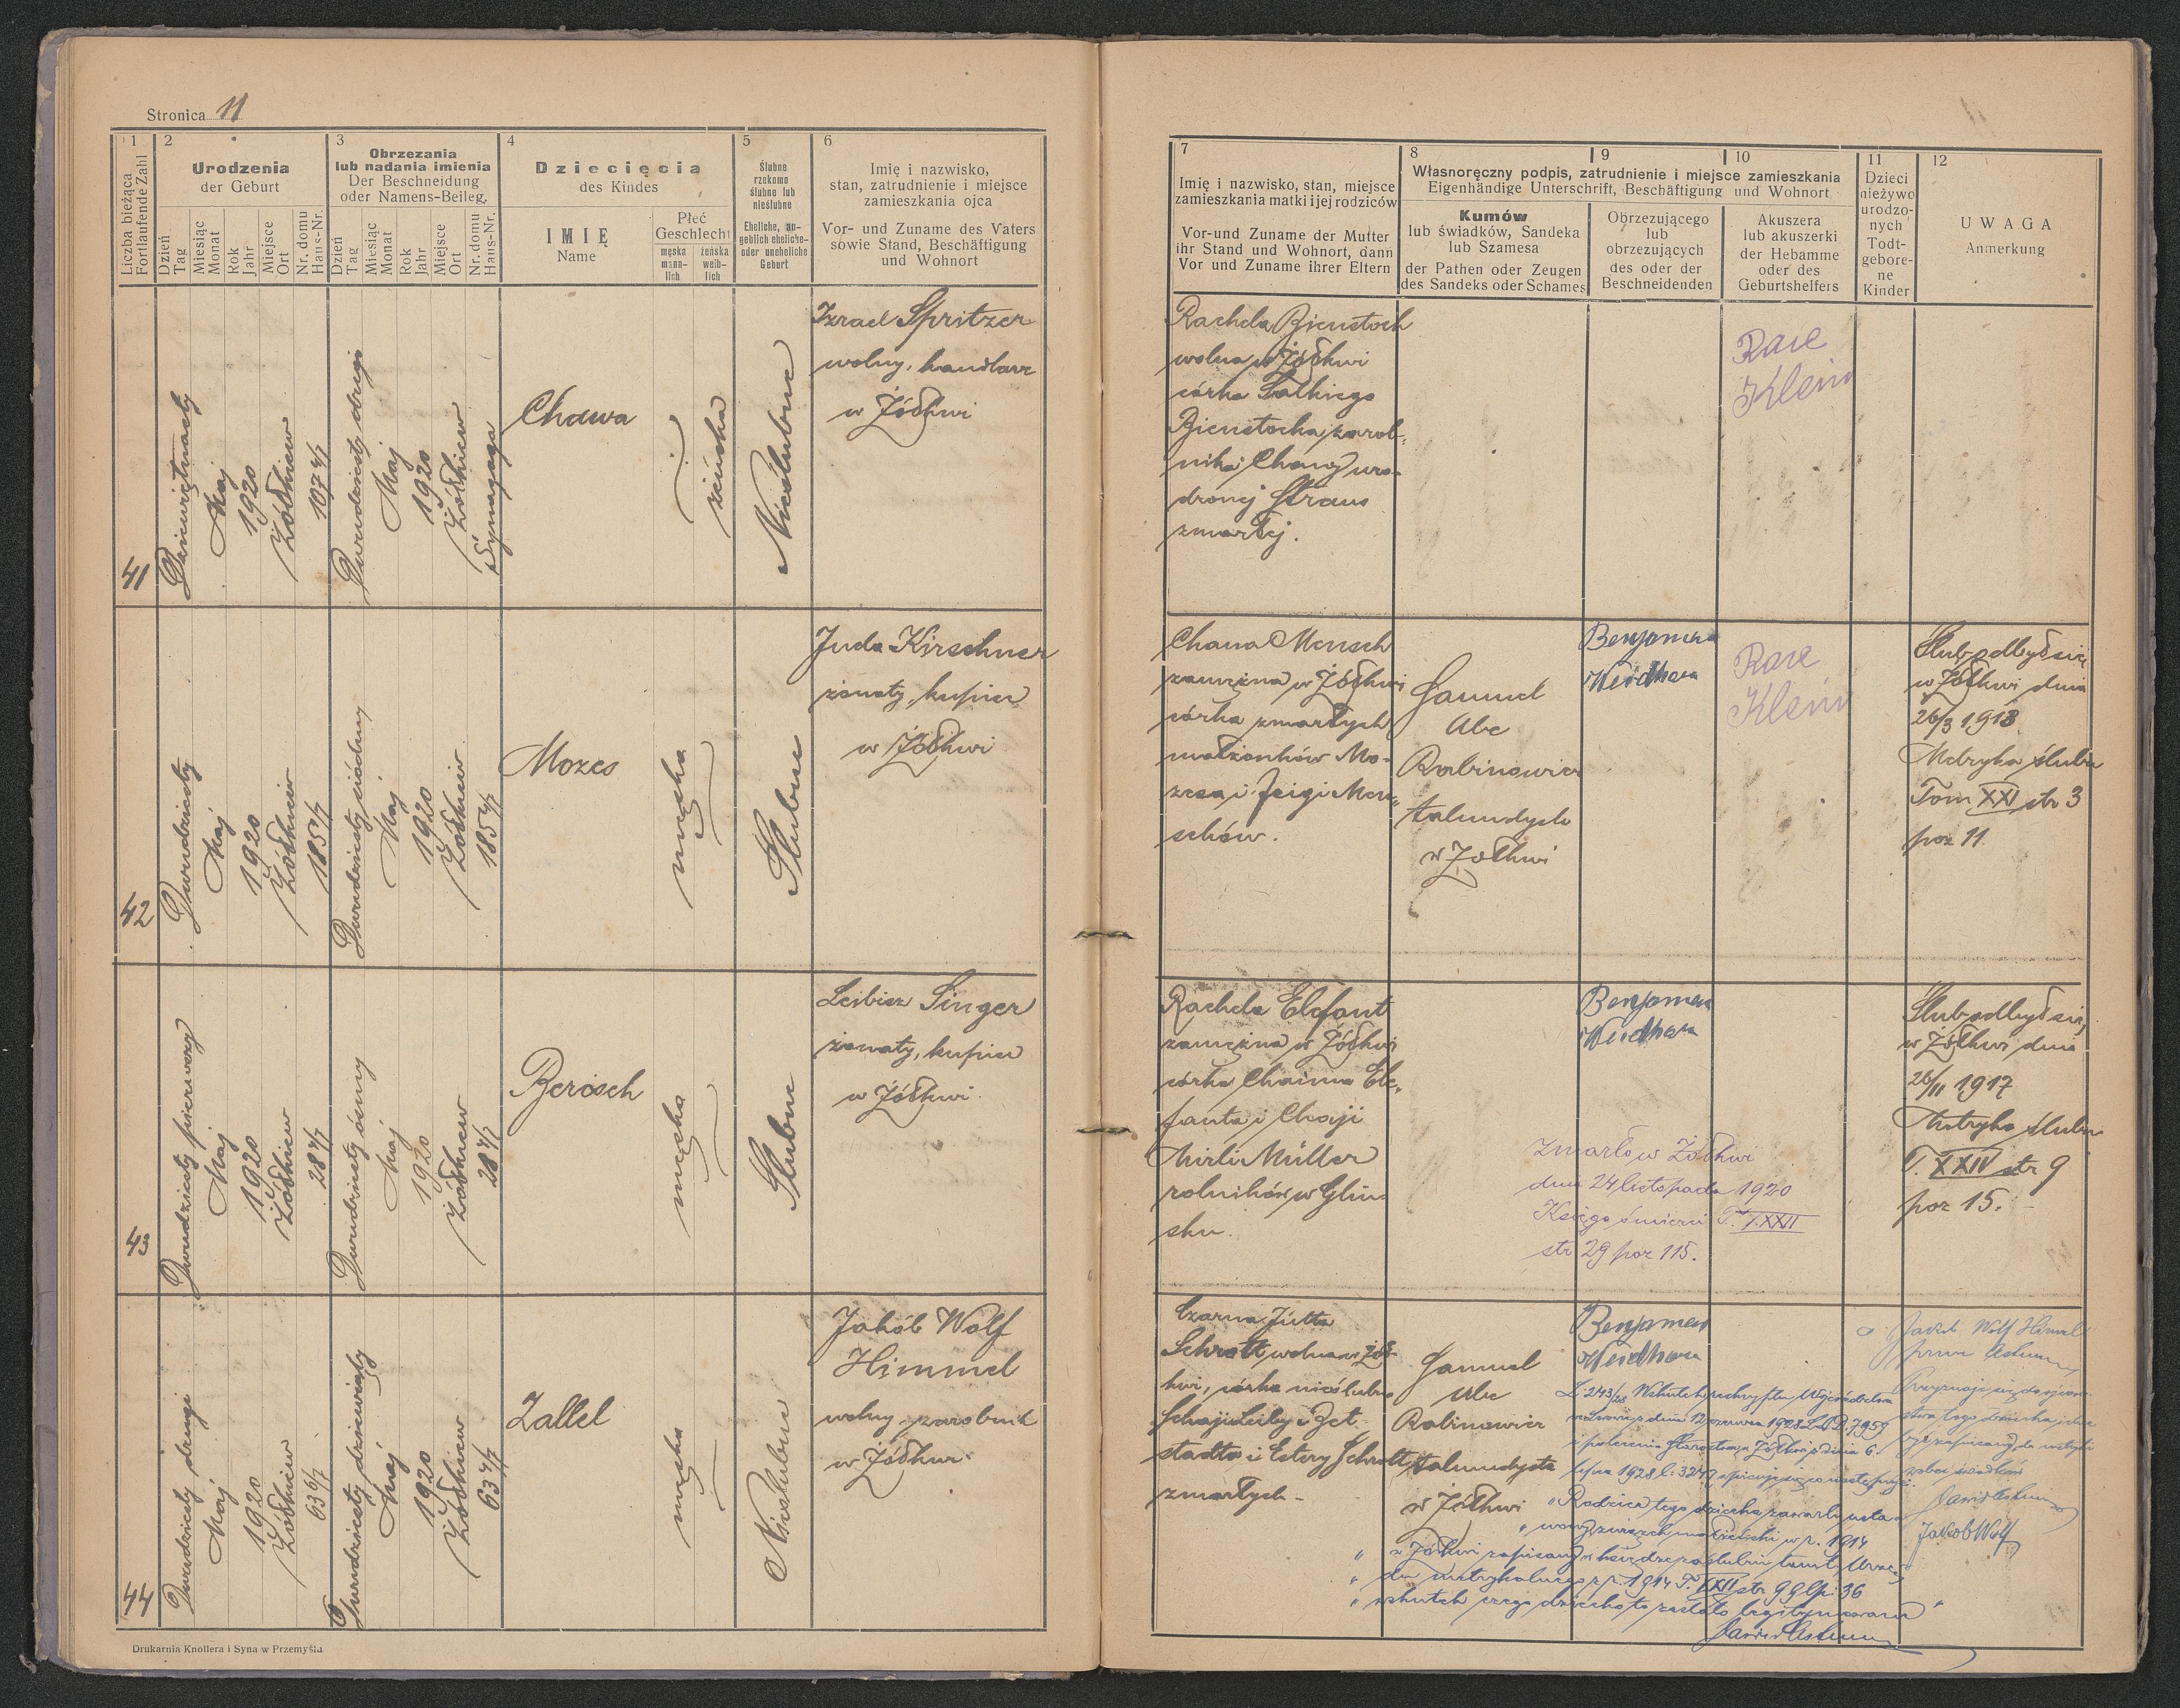 Stronica 11
1
2
3
4
5
6
Liczba bieżąca
Fortlaufende Zahl
Urodzenia
der Geburt
Dzień
Tag
Miesiąc
Monat
Rok
Jahr
Miejsce
Ort
Nr. domu
Haus-Nr.
Obrzezania
lub nadania imienia
Der Beschneidung
oder Namens-Beileg.
Dzień
Tag
Miesiąc
Monat
Rok
Jahr
Miejsce
Ort
Nr. domu
Haus-Nr.
Dziecięcia
des Kindes
IMIĘ
Name
Płeć
Geschlecht
męska
männ-
lich
żeńska
weib-
lich
Ślubne
rzekomo
ślubne lub
nieślubne
Eheliche, an-
geblich eheliche-
oder uneheliche
Geburt
Imię i nazwisko,
stan, zatrudnienie i miejsce
zamieszkania ojca
Vor- und Zuname des Vaters
sowie Stand, Beschäftigung
und Wohnort
7
8
9
10
11
12
Imię i nazwisko, stan, miejsce
zamieszkania matki i jej rodziców
Vor-und Zuname der Mutter
ihr Stand und Wohnort, dann
Vor und Zuname ihrer Eltern
Własnoręczny podpis, zatrudnienie i miejsce zamieszkania
Eigenhändige Unterschrift, Beschäftigung und Wohnort
Kumów
lub świadków, Sandeka
lub Szamesa
der Pathen oder Zeugen
des Sandeks oder Schames
Obrzezującego
lub
obrzezujących
des oder der
Beschneidenden
Akuszera
lub akuszerki
der Hebamme
oder des
Geburtshelfers
Dzieci
nieżywo
urodzo-
nych
Todt-
gebore-
ne
Kinder
UWAGA
Anmerkung
41
Dziewiętnasty
Maj
1920
Żółkiew
Dwudziesty drugi
Maj
1920
Żółkiew
Synagoga
Chawa
żeńska
Nieślubne
Izrael Spritzer
wolny, handlarz
w Żółkwi
Rachela Bienstock
wolna w Żółkwi
córka Salkiego
Bienstocka, zarob-
nika i Chany uro-
dzonej Straus
zmarłej.
Klein
42
Dwudziesty
Maj
1920
Żółkiew
185 4/7
Dwudziesty siódmy
Maj
1920
Żółkiew
185 4/7
Mozes
męska
Ślubne
Juda Kirschner
żonaty, kupiec
w Żółkwi
Chana Mensch
zamężna w Żółkwi
córka zmarłych
małżonków Mo-
zesa i Feigi Men-
schów.
Samuel
Abe
Rabinowicz
talmudysta
w Żółkwi
Klein
Ślub odbył się
w Żółkwi dnia
26/3 1918
Metryka ślubu
Tom XXI str 3
poz 11.
43
Dwudziesty pierwszy
Maj
1920
Żółkiew
28 4/7
Dwudziesty ósmy
Maj
1920
Żółkiew
28 4/7
Berisch
męska
Ślubne
Leibisz Singer
żonaty, kupiec
w Żółkwi.
Rachela Elefant
zamężna w Żółkwi
córka Chaima Ele-
fanta i Chaji
Mirli Müller
rolników w Gliń-
sku.
Zmarło w Żółkwi
dnia 24 listopada 1920
Księga śmierci T. XXII
str 29 poz 115.
Ślub odbył się
w Żółkwi dnia
26/11 1917
Metryka ślubu
T. XXIV str 9
poz 15.
44
Dwudziesty drugi
Maj
1920
Żółkiew
Dwudziesty dziewiąty
Maj
1920
Żółkiew
63 4/7
Zallel
męska
Nieślubne
Jakób Wolf
Himmel
wolny, zarobnik
w Żółkwi.
Czarna Jütta
Schrott wolna w Żół-
kwi, córka nieślubna
zmarłych
Samuel
Abe
Rabinowicz
talmudysta
w Żółkwi
"Rodzice tego dziecka zawarli
związek małżeński w r. 1914
1914 T. XXII str 99 lp. 36
wskutek czego dziecko to zostało legitymowane"
Jakob Wolf Himmel
Jakob Wolf
Drukarnia Knollera i Syna w Przemyślu